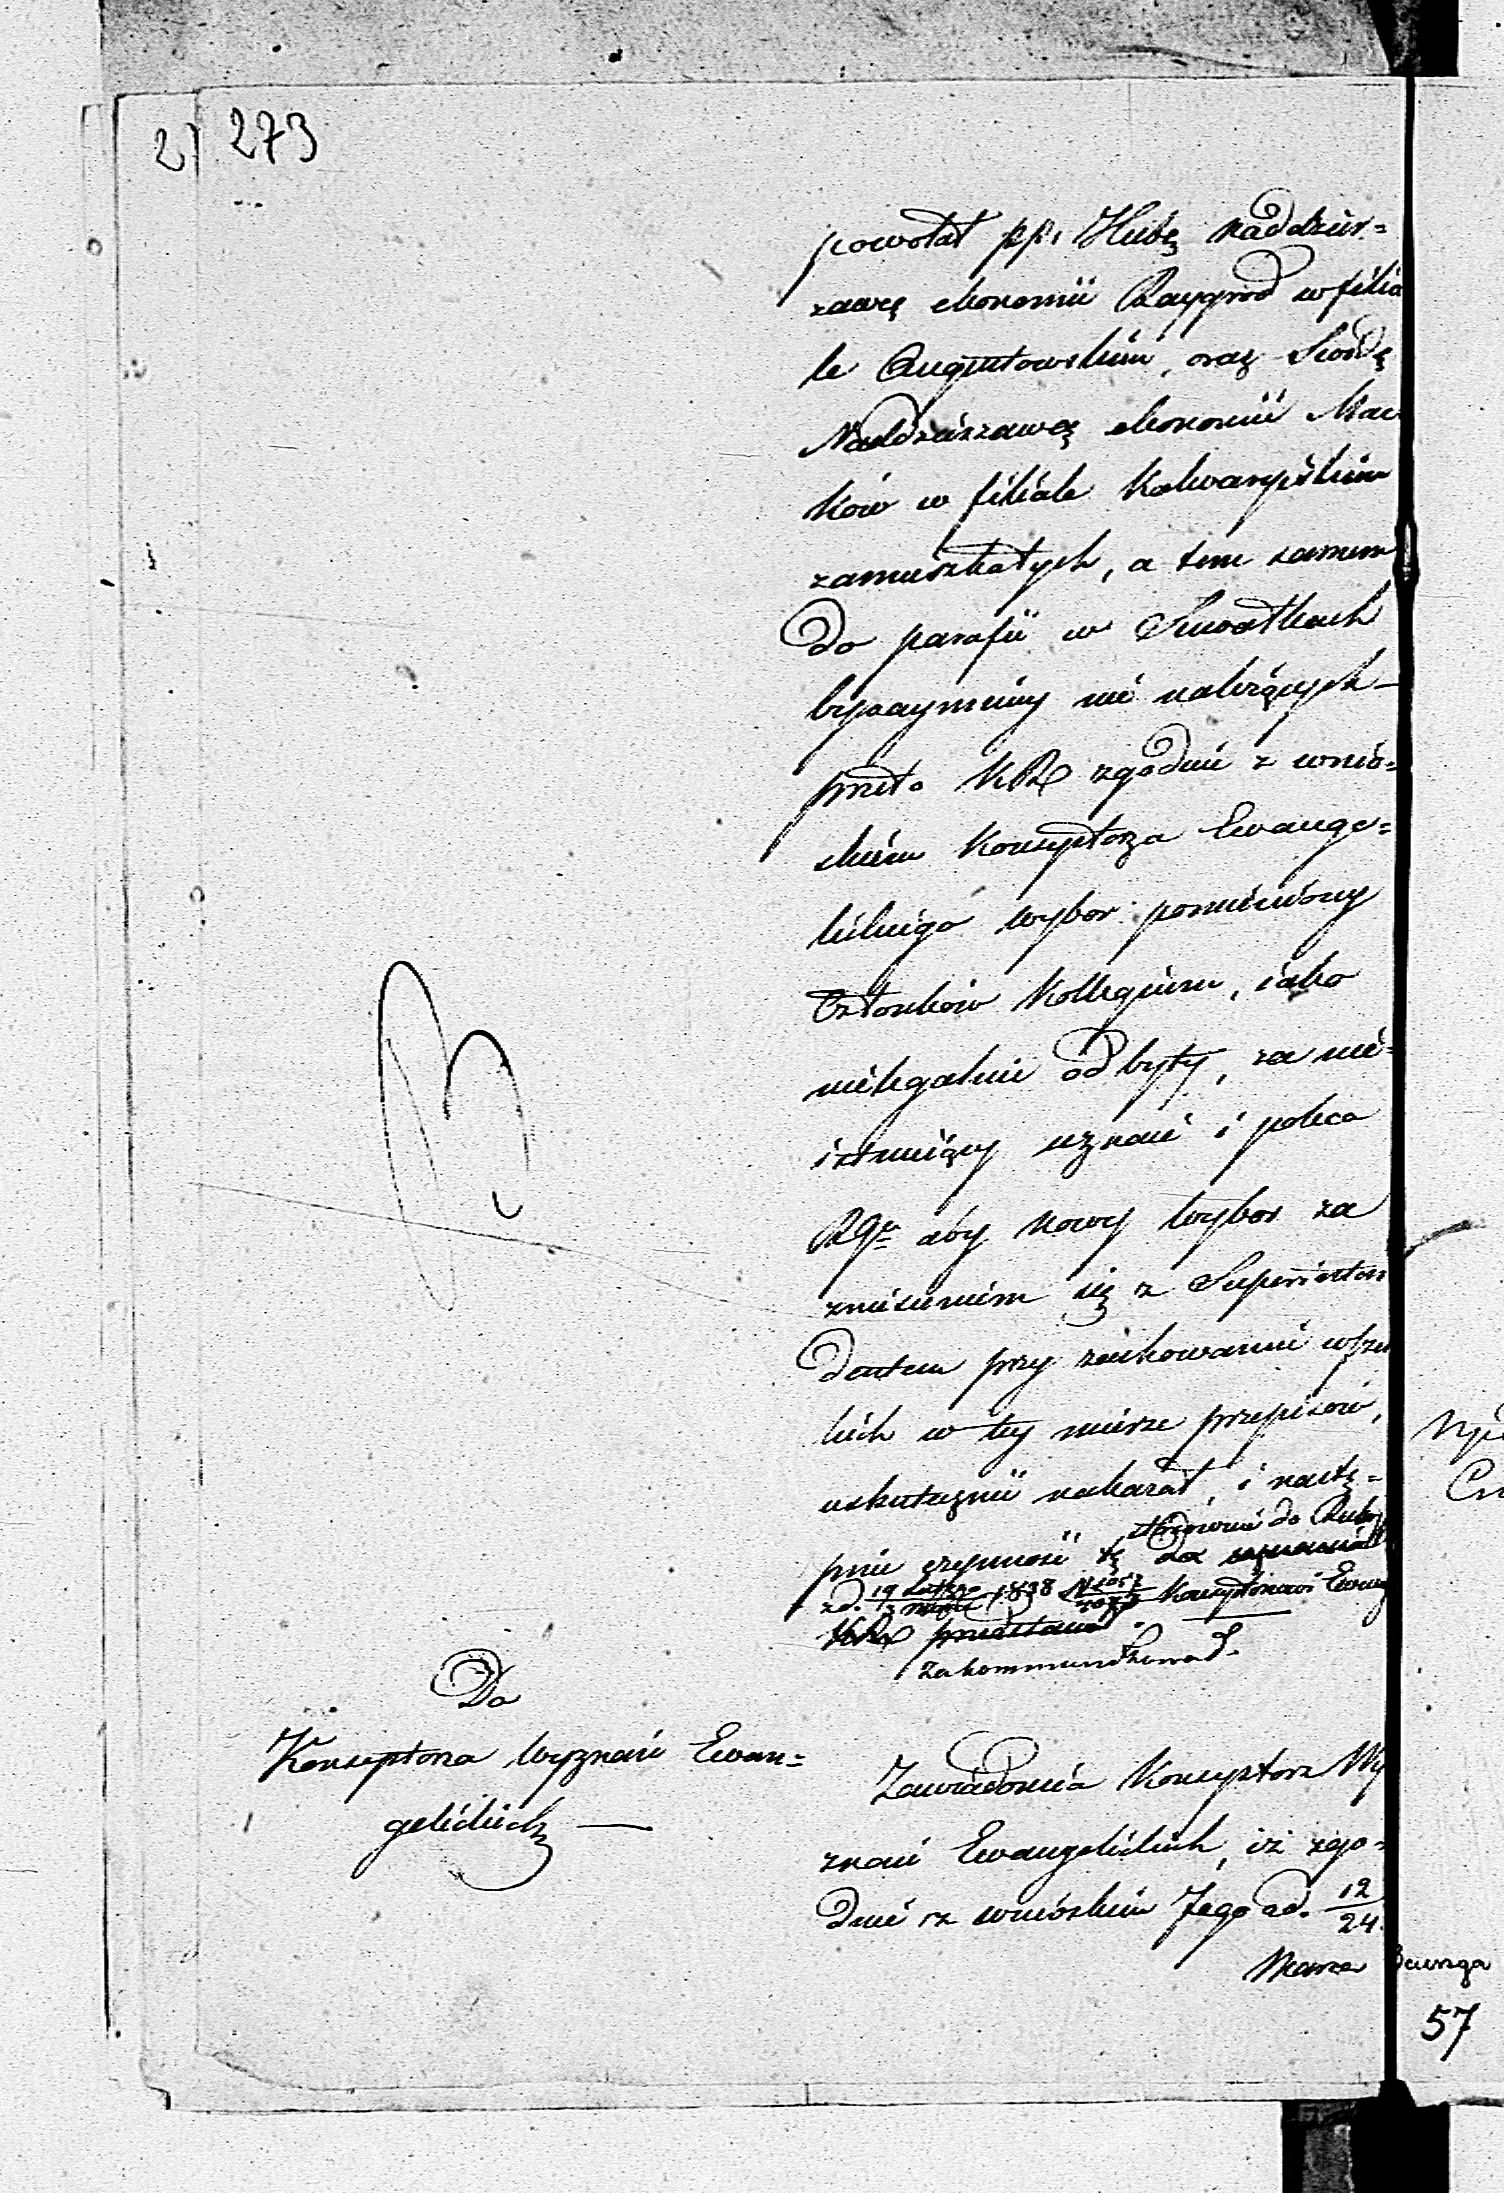 2) 273
powołał pp. Hubę naddzier=
zawcę ekonomii Raygród w filia
le Augustowskim, oraz
Naddzierzawcę ekonomii Mac
ków w filiale Kalwaryiskim
zamieszkałych, a tem samem
do parafii w Suwałkach
bynaymniey nie należących –
przeto KR zgodnie z wnio=
skiem Konsystorza Ewange=
lickiego wybor pomieniony
Członków Kollegium, iako
nielegalnie odbyty, za nie=
istnieiący uznaie i poleca
RGu aby nowy wybor za
zniesieniem się z Superinten
dentem przy zachowaniu wszel
kich w tey mierze przepisów,
uskutecznić nakazał, i nastę=
stosownie do Reskr
pnie czynność tę do
z d. 19 Lutego 3 Marca 1838 Konsystorzowi Ewang
KR przesłał
zakommunikował.
Do
Konsystorza Wyznań Ewan=
gelickich —
Zawiadomia Konsystorz Wy
znań Ewangelickich, iż zgo=
dnie z wnioskiem Jego z d. 12/24
Marca
57